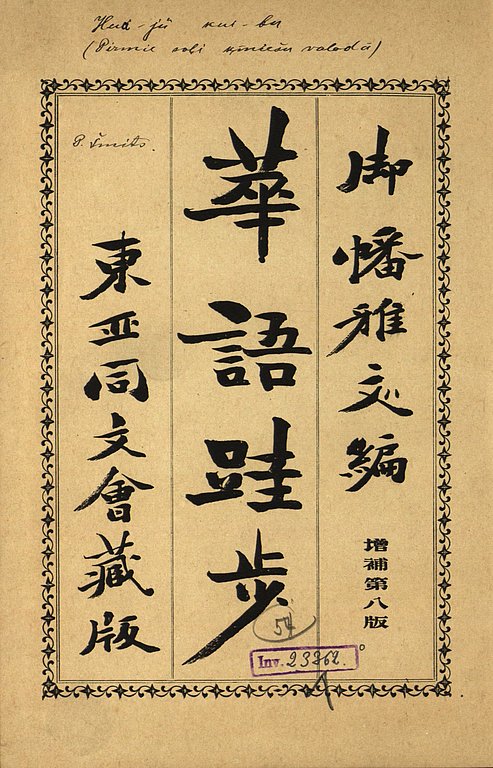 Hua-jü kui-bu
(Pirmie soli ķīniešu valodā)
P. Šmits.
御幡雅文編
增補第八版
華語跬步
東亞同文會藏版
54
Inv. 23262.